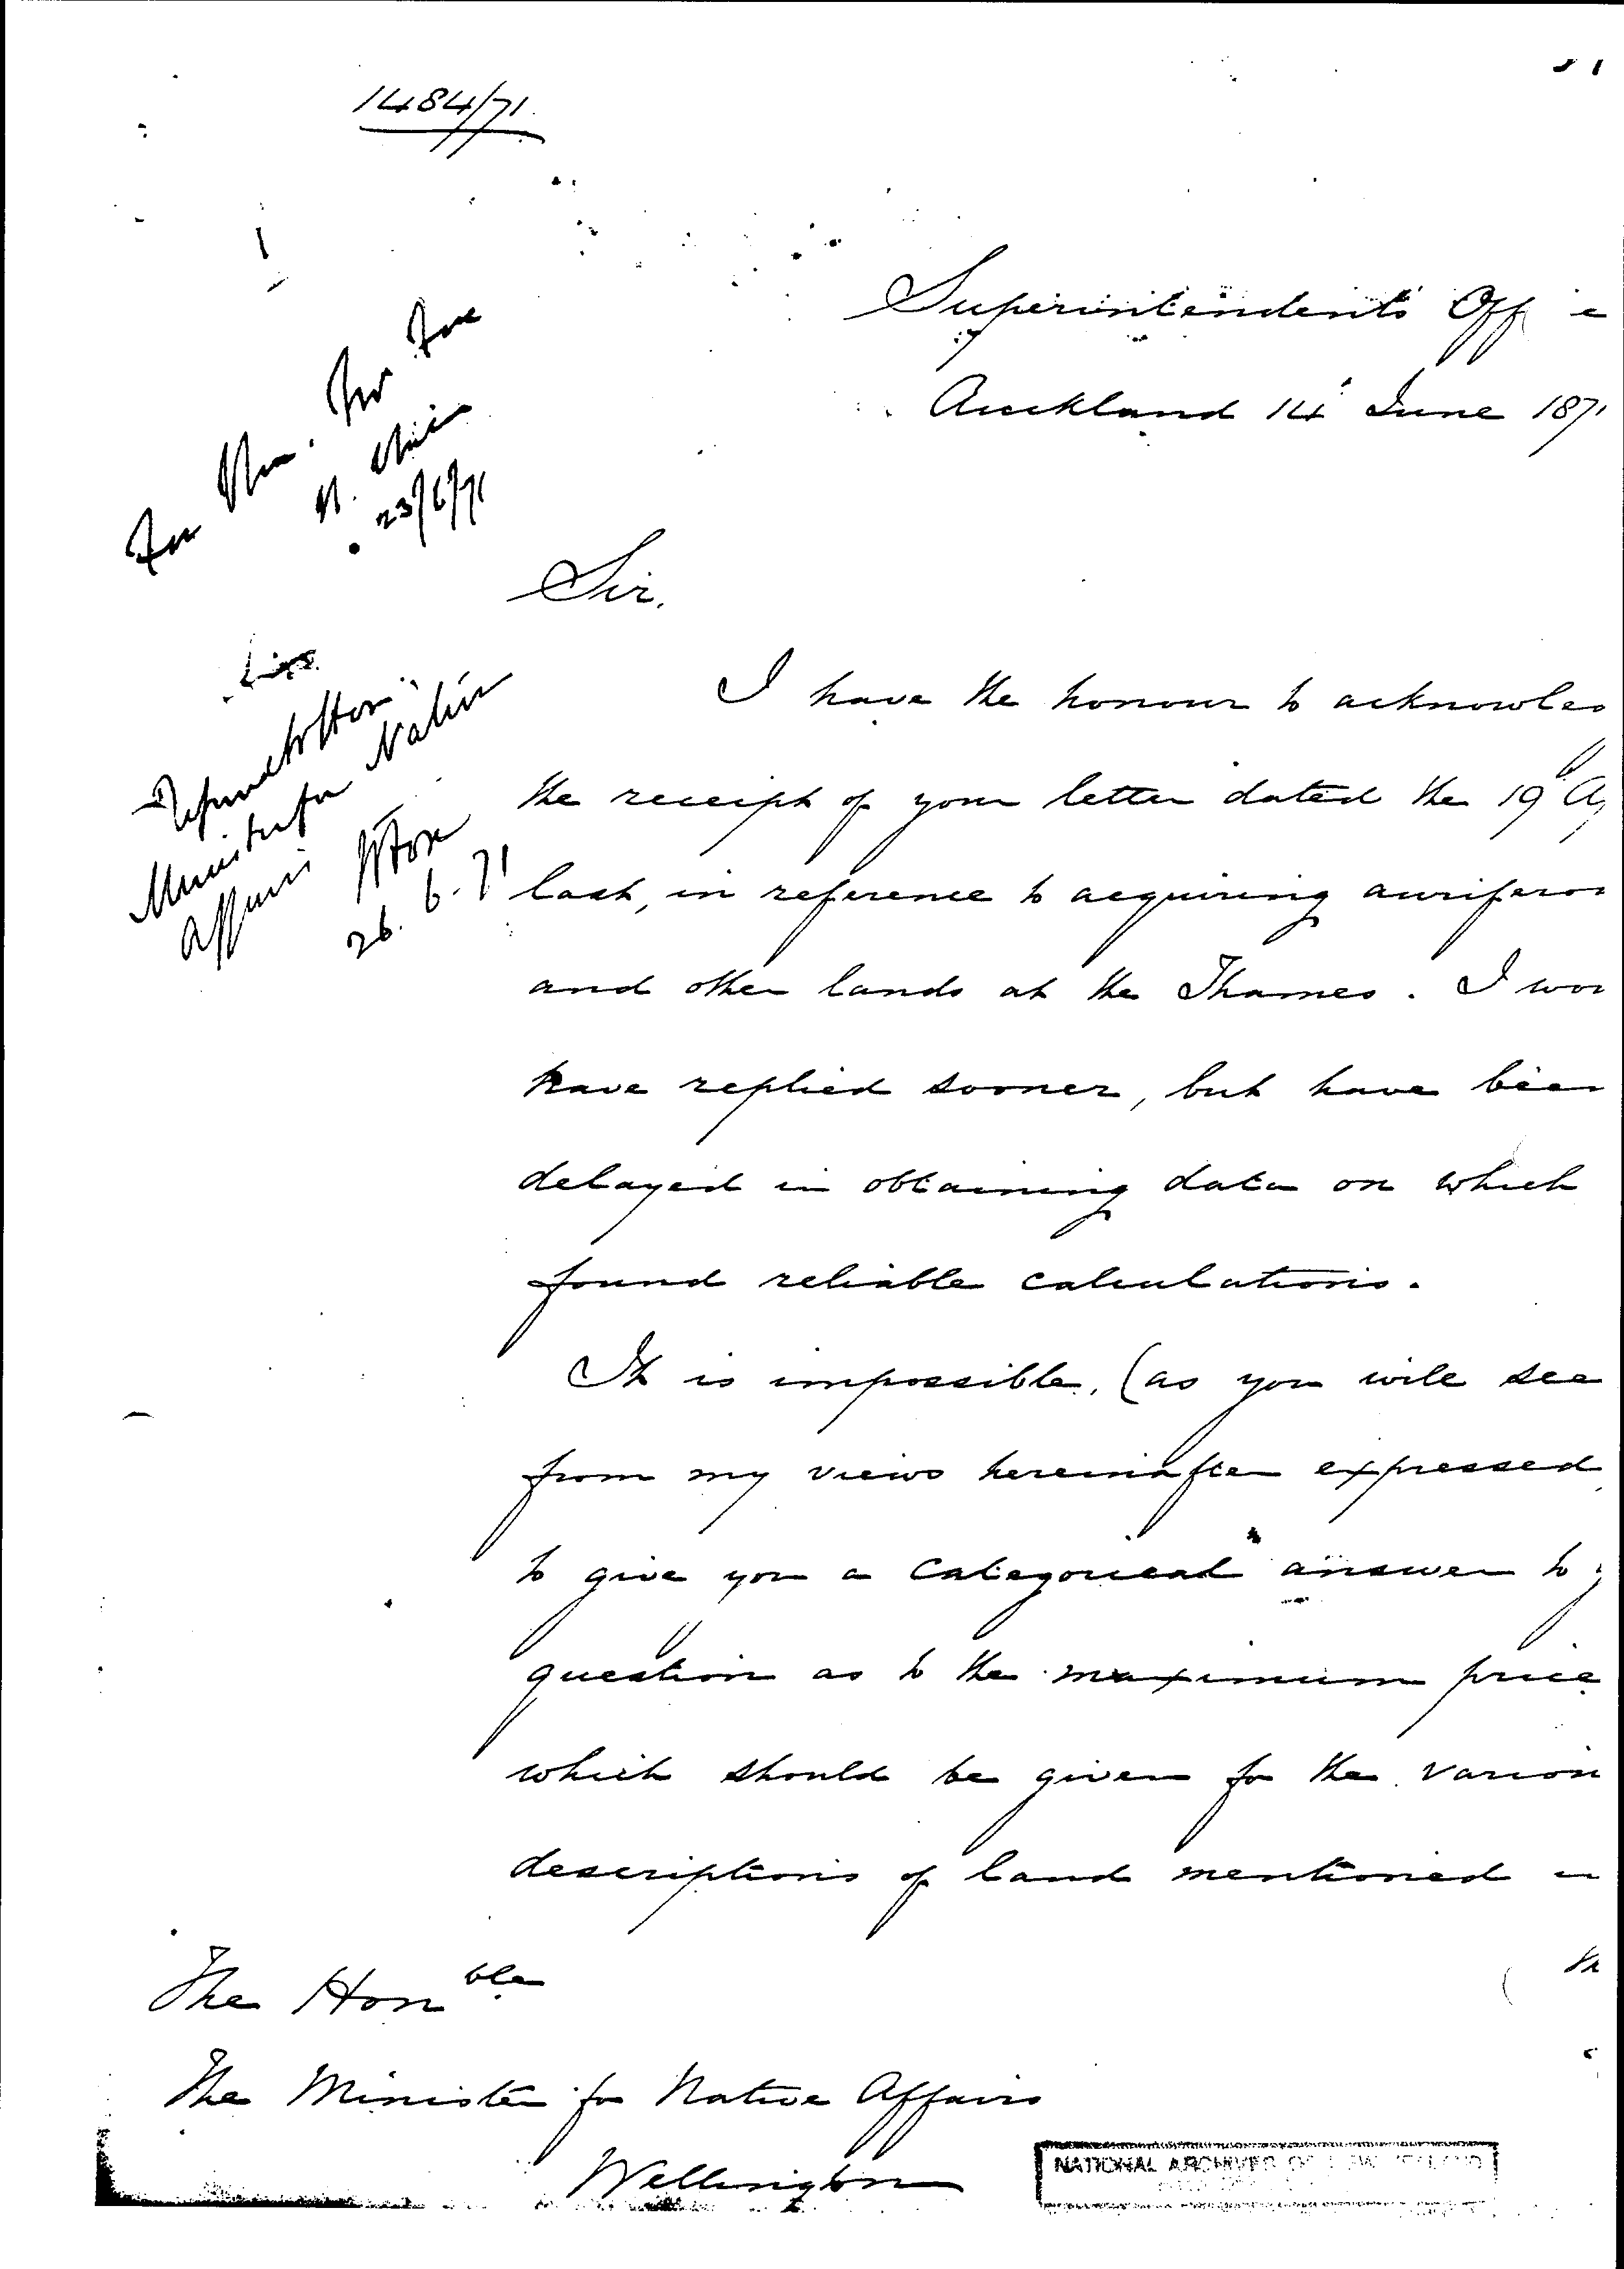 1484/71.
Superintendent's Off e
Auckland 14 June 187
23/6/71
Sir.
I have the honour to acknowled
the receipt of your letter dated the 19th A
last, in reference to acquiring auriferou
and other lands at the Thames. I wou
have replied sooner, but have been
delayed in obtaining data on which
found reliable calculations.
It is impossible, (as you will see
from my views hereinafter expressed
to give you a categorical answer to y
question as to the maximum price
which should be given for the variou
descriptions of land mentioned in
Minister for Native
Affairs
26.6.71
The Honble
The Minister for Native Affairs
Wellington
NATIONAL ARCHIVES OF NEW ZEALAND